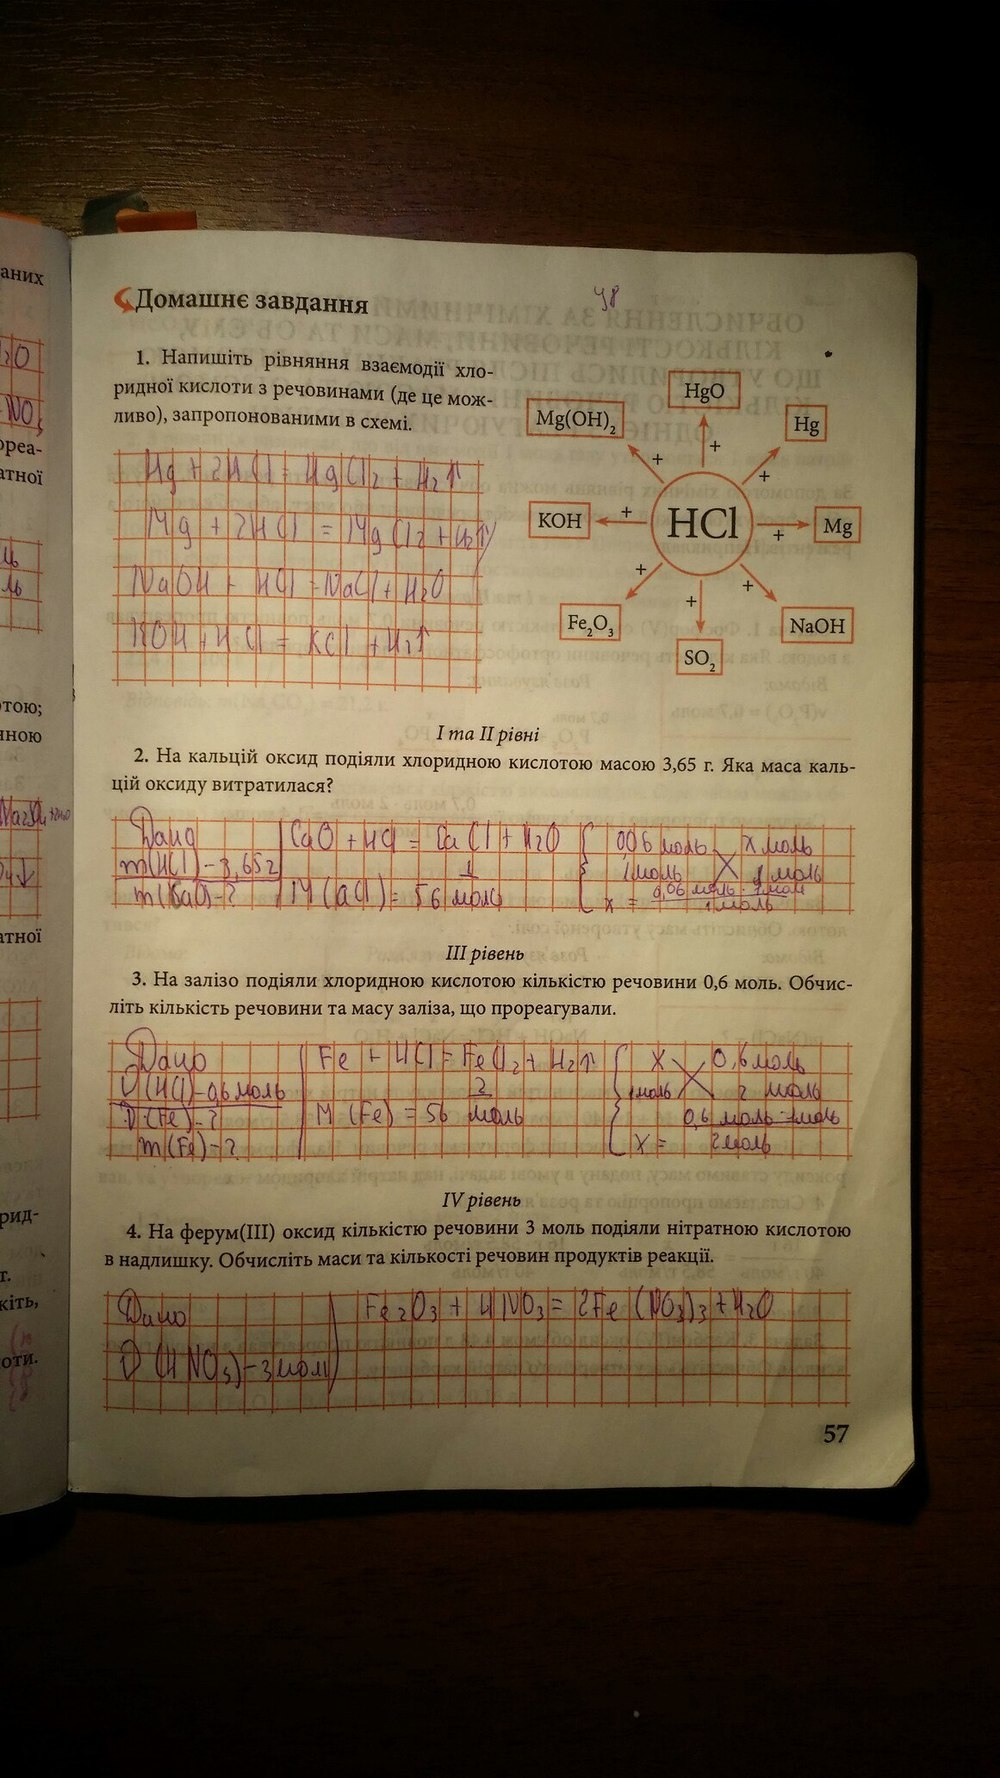 Домашнє завдання
1. Напишіть рівняння взаємодії хло-
ридної кислоти з речовинами (де це мож-
ливо), запропонованими в схемі.
Hg + 2HCl = HgCl2 + H2↑
Mg + 2HCl = MgCl2 + H2↑
NaOH + HCl = NaCl + H2O
KOH + HCl = KCl + H2↑
HgO
Mg(OH)2
Hg
KOH
HCl
Mg
Fe2O3
SO2
NaOH
+
+
+
+
+
+
+
+
I та II рівні
2. На кальцій оксид подіяли хлоридною кислотою масою 3,65 г. Яка маса каль-
цій оксиду витратилася?
Дано
m(HCl) - 3,65 г
m(CaO) - ?
CaO + HCl = CaCl + H2O
1
M(aCl) = 56 моль
006 моль x моль
1 моль 1 моль
x = 0,06 моль · 1 моль
1 моль
III рівень
3. На залізо подіяли хлоридною кислотою кількістю речовини 0,6 моль. Обчис-
літь кількість речовини та масу заліза, що прореагували.
Дано
ν(HCl) - 0,6 моль
ν(Fe) - ?
m(Fe) - ?
Fe + HCl = FeCl2 + H2↑
2
M (Fe) = 56 моль
x 0,6 моль
1 моль 2 моль
0,6 моль · 1 моль
x = 2 моль
IV рівень
4. На ферум(III) оксид кількістю речовини 3 моль подіяли нітратною кислотою
в надлишку. Обчисліть маси та кількості речовин продуктів реакції.
Дано
ν(HNO3) - 3 моль
Fe2O3 + HNO3 = 2Fe(NO3)3 + H2O
57
аних
реа-
атної
отою;
иною
атної
рид-
г.
кіть,
оти.